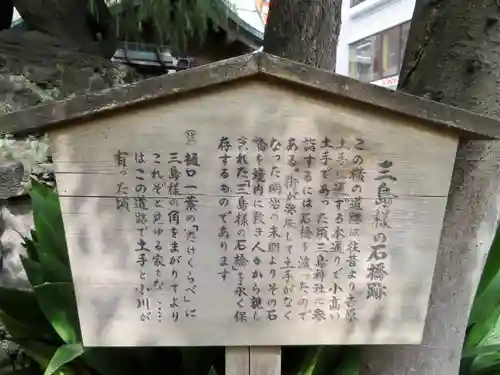 三島様の石橋跡
この横の道路は往昔より吉原
土手に通ずる本通りで小高い
土手であった頃三島神社に参
詣するには石橋を渡ったので
ある。街が発展して土手がなく
なった明治の末期よりその石
橋を境内に敷き人々から親し
された「三島様の石橋」を永く保
存するものであります
註 樋口一葉の「たけくらべ」に
三島様の角をまがりてより
これぞと見ゆる家もな……
はこの道路で土手と小川が
有った頃